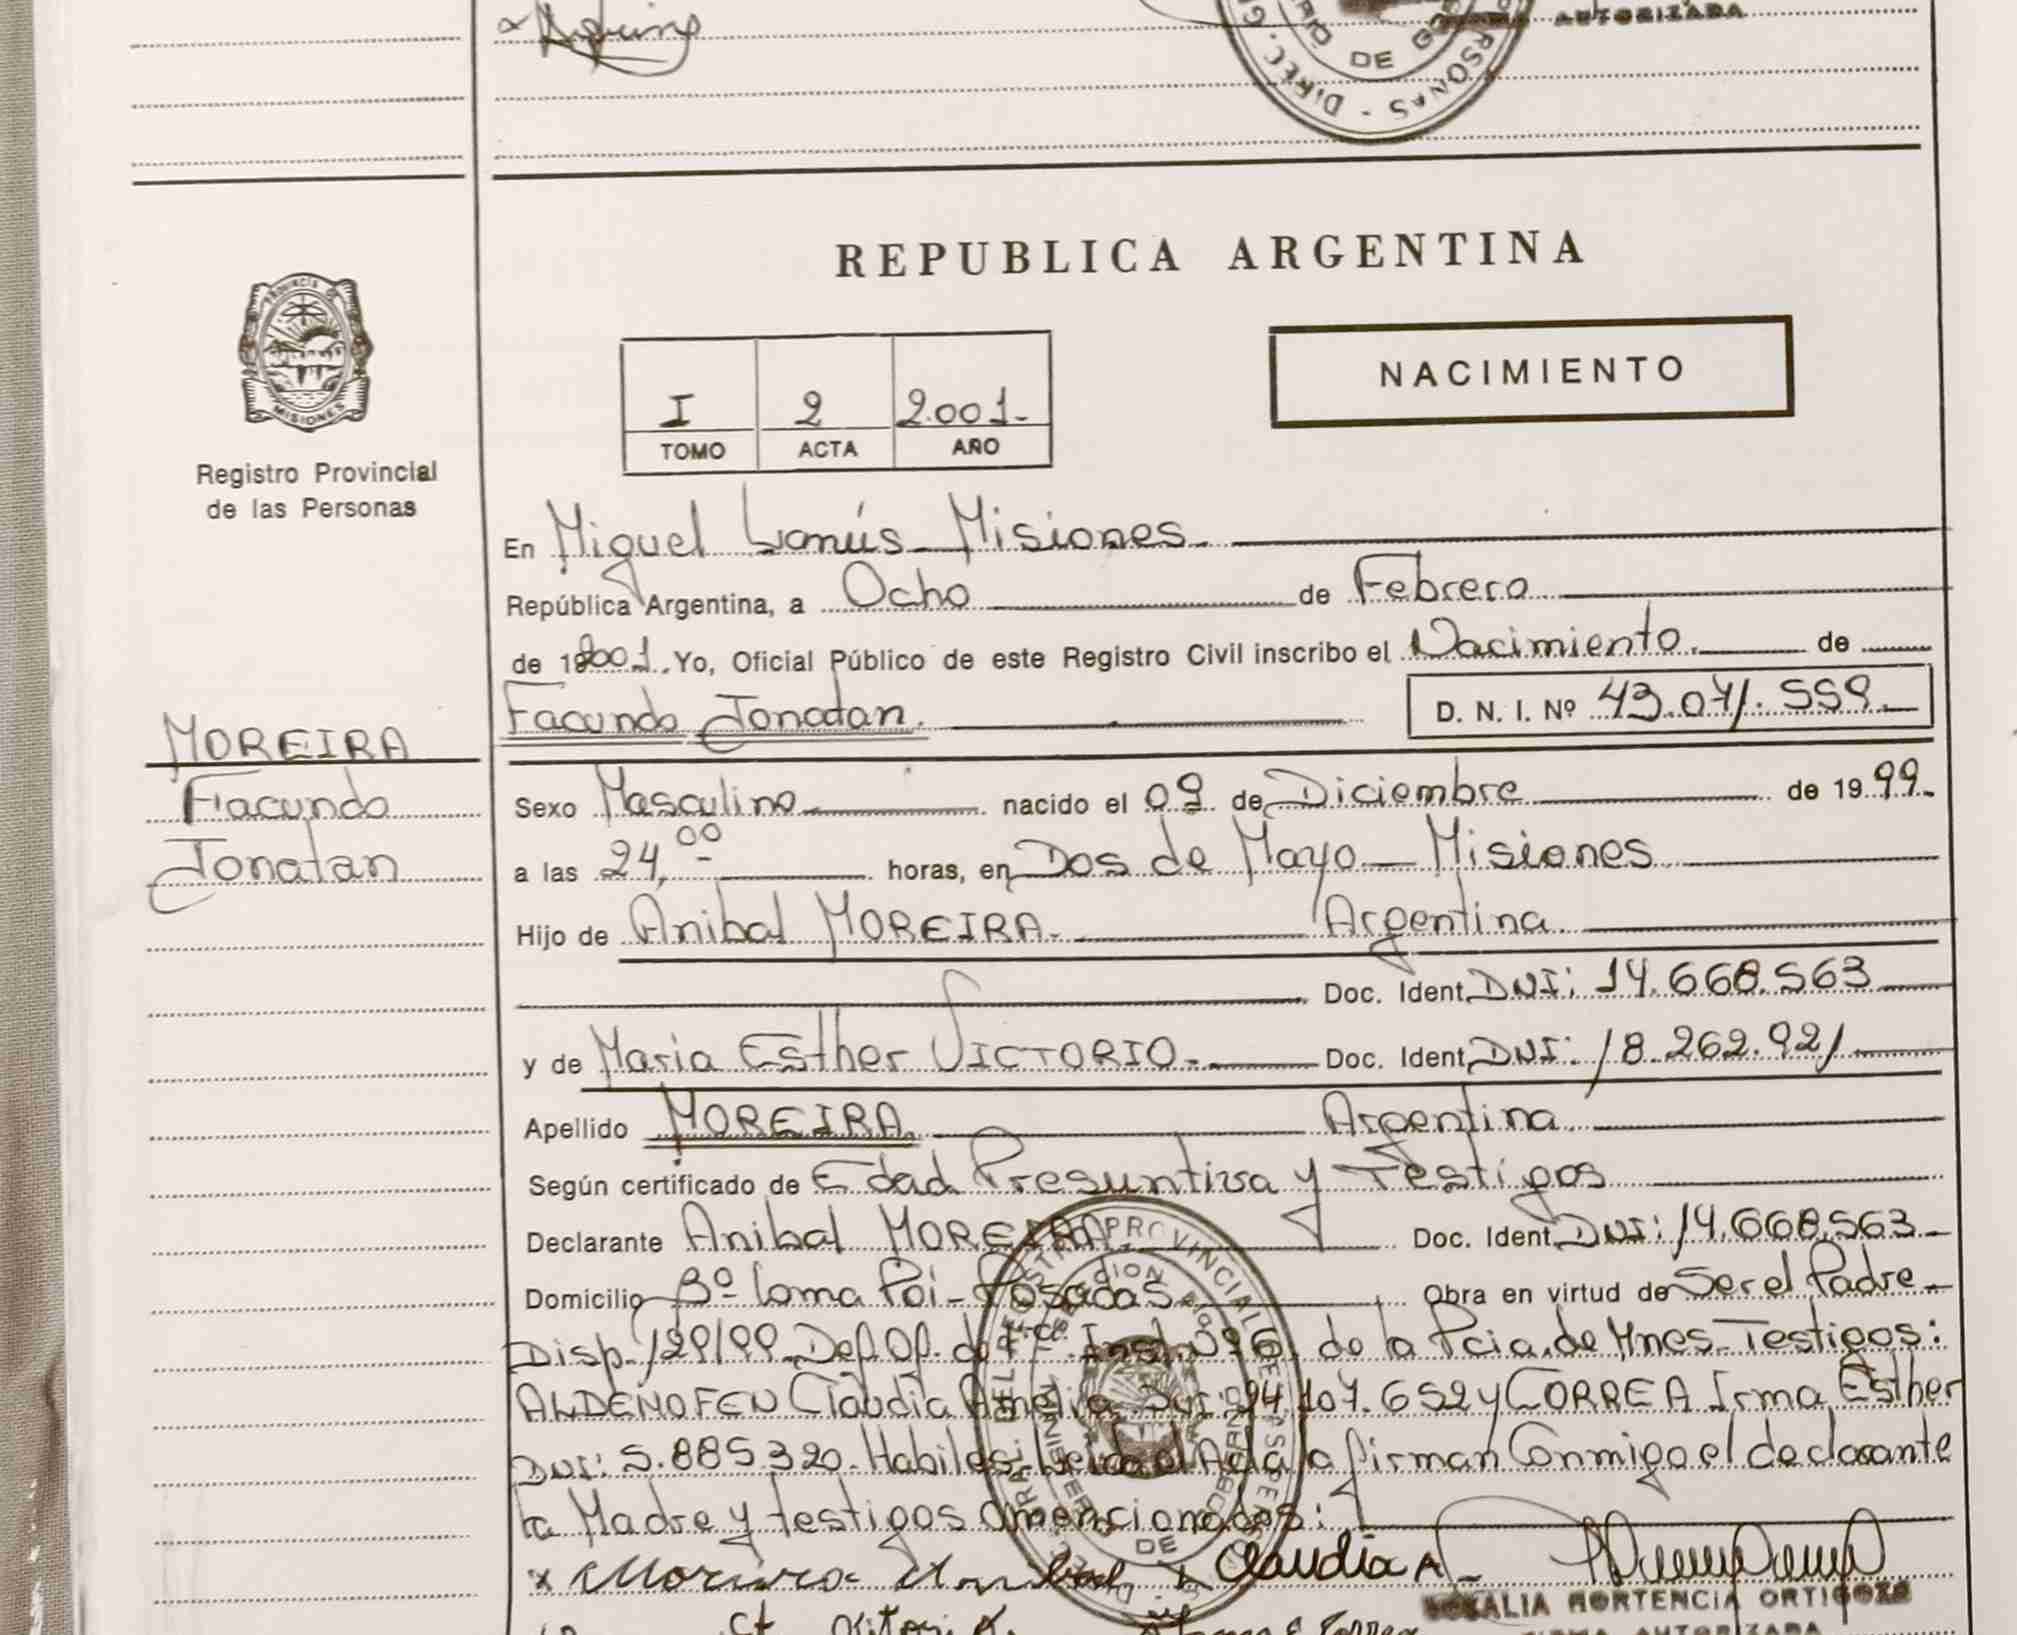 AUTORIZADA
REPUBLICA ARGENTINA
NACIMIENTO
I 2 2.001-
TOMO ACTA AÑO
MISIONES
Registro Provincial
de las Personas
En Miguel Lanús - Misiones.
República Argentina, a Ocho de Febrero
de 2001. Yo, Oficial Público de este Registro Civil inscribo el Nacimiento. de
Facundo Jonatan. D. N. I. Nº 43.071.559.
MOREIRA
Facundo
Jonatan
Sexo Masculino nacido el 09 de Diciembre de 1999.
a las 24,00 horas, en Dos de Mayo - Misiones
Hijo de Anibal MOREIRA. Argentina.
Doc. Ident. DNI: 14.668.563
y de Maria Esther VICTORIO. Doc. Ident. DNI: 18.262.921
Apellido MOREIRA. Argentina.
Según certificado de Edad Presuntiva y Testigos
Declarante Anibal MOREIRA Doc. Ident. DNI: 14.668.563
Domicilio Bº Loma Poi - Posadas Obra en virtud de Ser el Padre -
Disp. 129/99 de la Pcia. de Mnes. Testigos:
Claudia Amelia DNI: 24.107.652 y CORREA Irma Esther
DNI: 5.885.320. Habiles; Leida el Acta la firman Conmigo el declarante
la Madre y testigos amencionados:
x Moreira Anibal x Claudia A
ROSALIA HORTENCIA ORTIGOZA
FIRMA AUTORIZADA